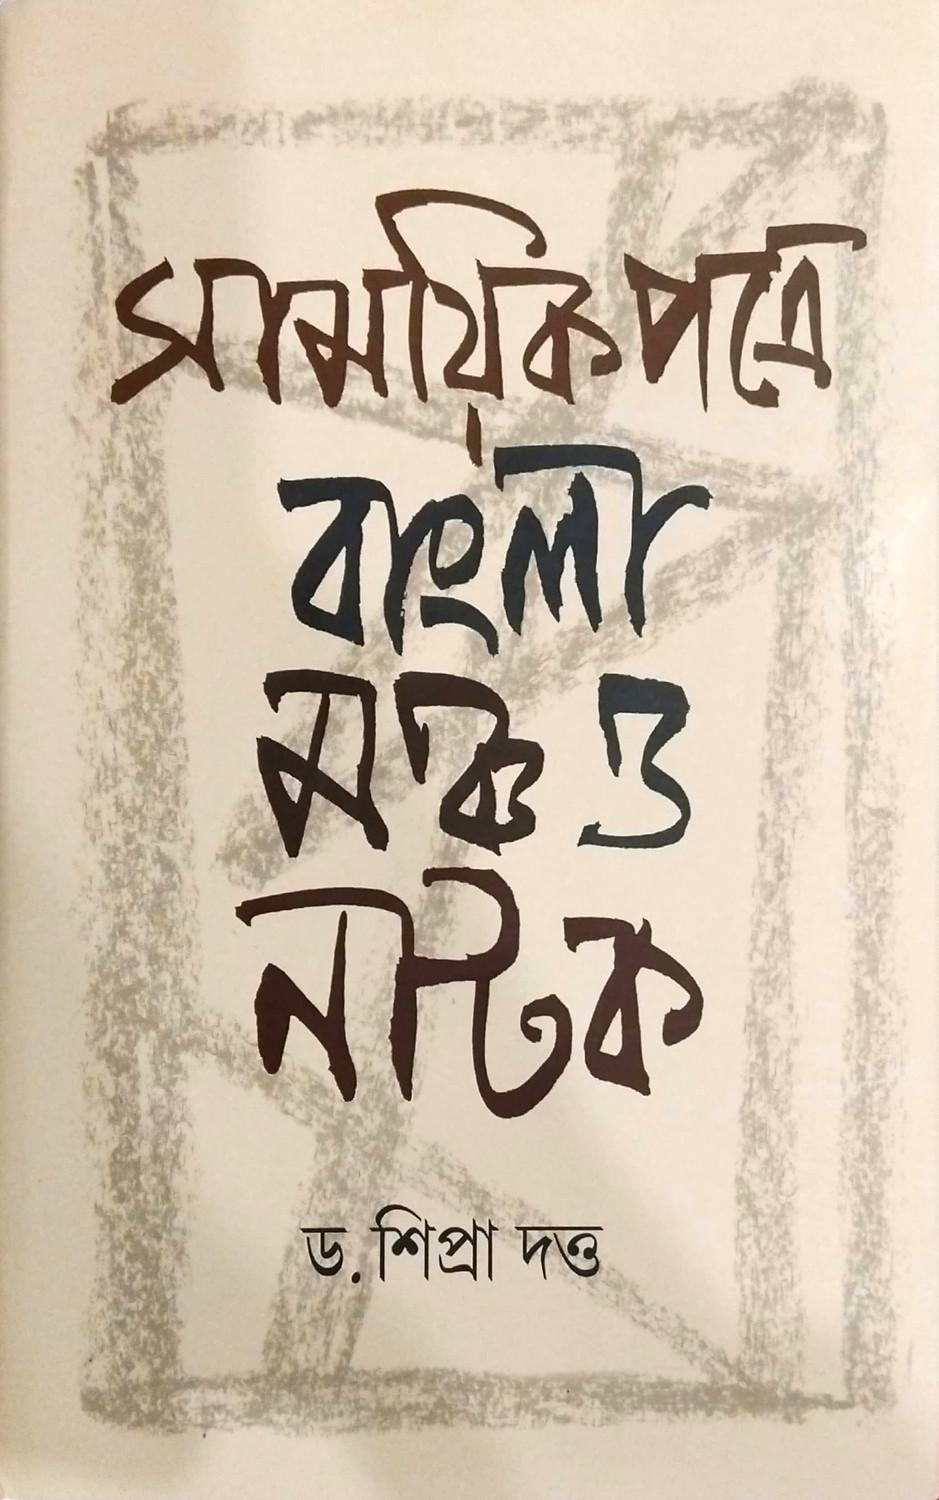 সাময়িকপত্রে
বাংলা
মঞ্চ ও
নাটক
ড. শিপ্রা দত্ত